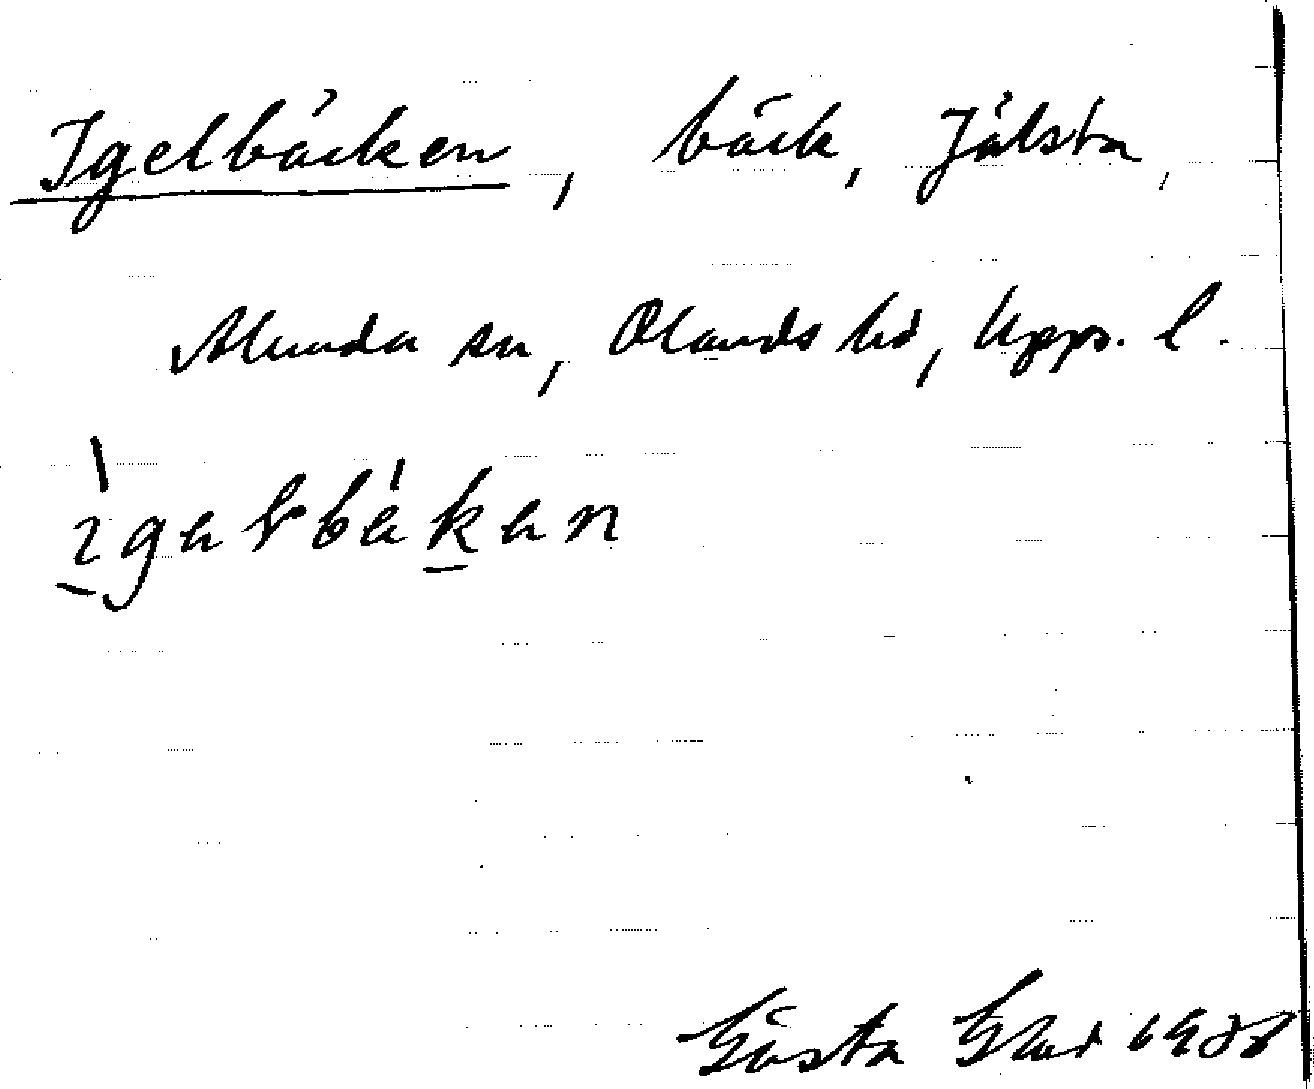 Igelbäcken, bäck, Jälsta,
Alunda sn, Olands hd, Upps. l.
ìgelbäken
Gösta